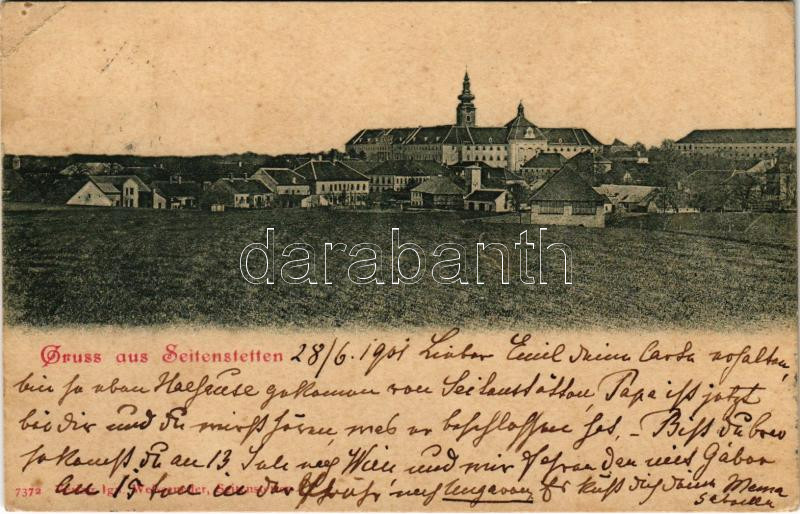 darabanth
Gruss aus Seitenstetten 28/6. 1901 Lieber Emil deine Carte erhalten,
bin so eben nach Hause gekommen von Seitenstätten, Papa ist jetzt
bei dir und du wirst hören was er beschlossen hat, – Bist du brav
so komst du am 13. Juli nach Wien und wir fahren dan mit Gábor
am 15 Juli in der Früh nach Ungaren Es küßt dich deine Mama
7372 Igt. Seitenstetten